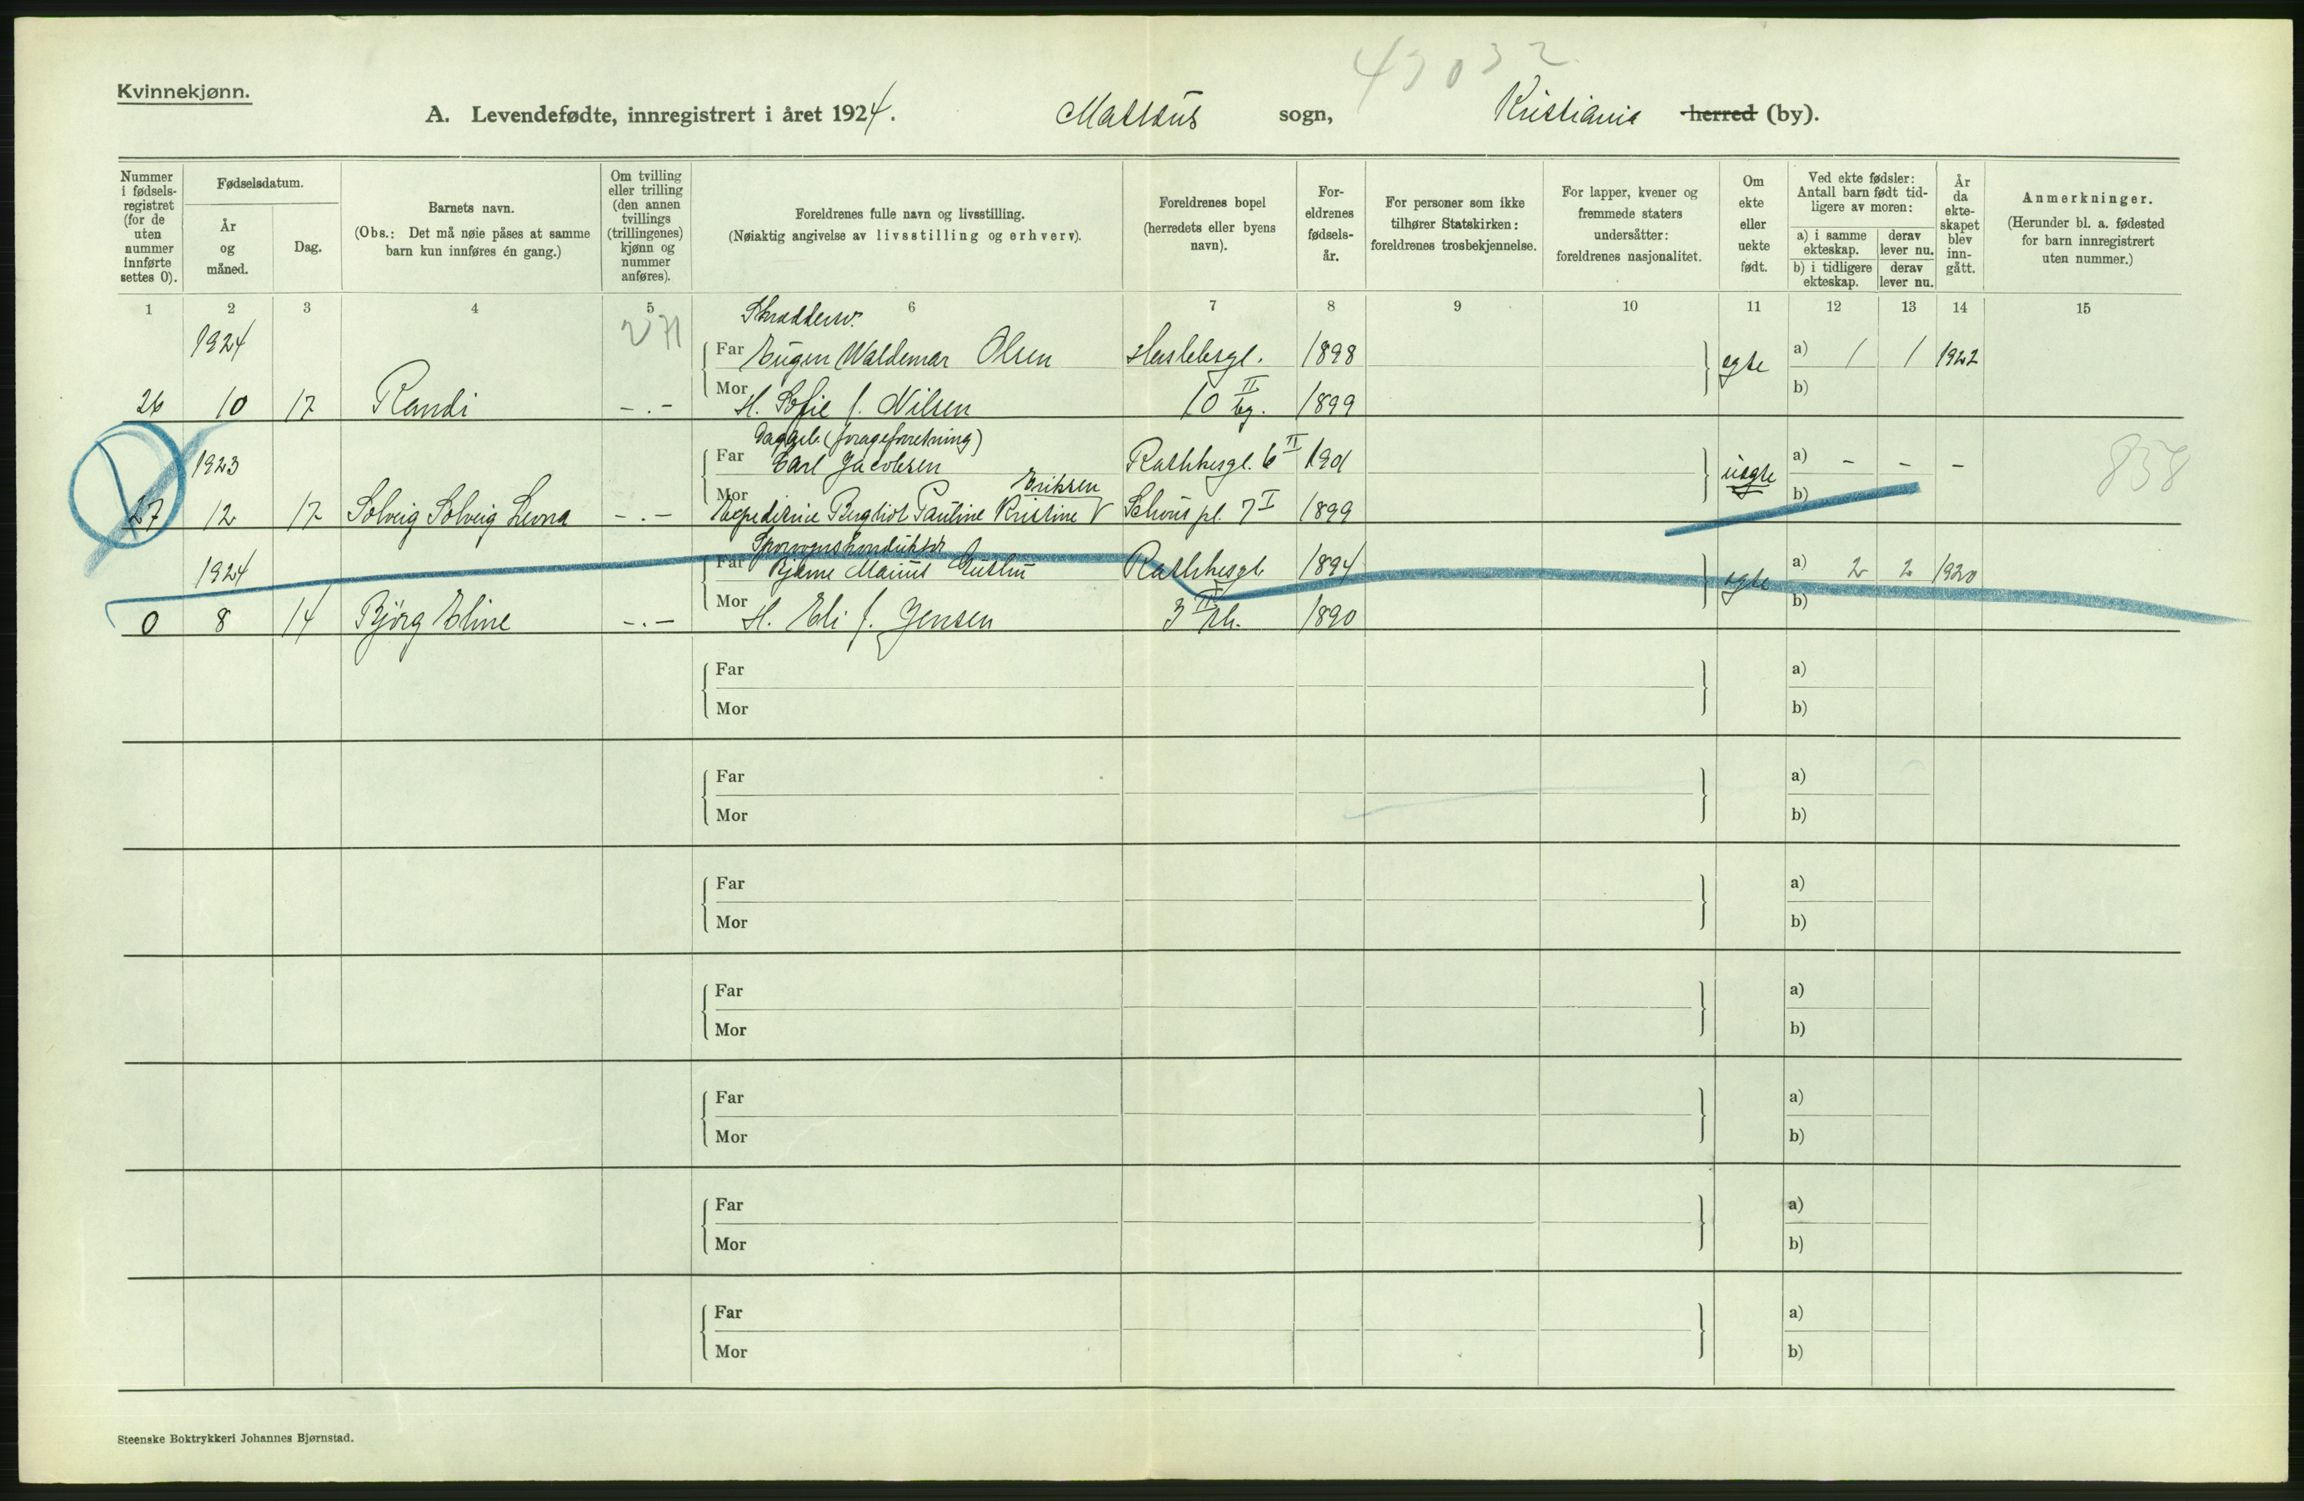 43032
Kvinnekjønn.
A. Levendefødte, innregistrert i året 1924. Mattæus sogn, Kristiania herred (by).
Nummer i fødsels-registret (for de uten nummer innførte settes 0).
Fødselsdatum.
År og måned.
Dag.
Barnets navn.
(Obs.: Det må nøie påses at samme barn kun innføres én gang.)
Om tvilling eller trilling (den annen tvillings (trillingenes) kjønn og nummer anføres).
Foreldrenes fulle navn og livsstilling.
(Nøiaktig angivelse av livsstilling og erhverv).
Foreldrenes bopel (herredets eller byens navn).
For-eldrenes fødsels-år.
For personer som ikke tilhører Statskirken: foreldrenes trosbekjennelse.
For lapper, kvener og fremmede staters undersåtter: foreldrenes nasjonalitet.
Om ekte eller uekte født.
Ved ekte fødsler: Antall barn født tid-ligere av moren:
a) i samme ekteskap. derav lever nu.
b) i tidligere ekteskap. derav lever nu.
År da ekte-skapet blev inn-gått.
Anmerkninger.
(Herunder bl. a. fødested for barn innregistrert uten nummer.)
1 2 3 4 5 6 7 8 9 10 11 12 13 14 15
271
Skreddersv.
1924 Far Eugen Waldemar Olsen Herslebsgt. 1898 egte a) 1 1 1922
26 10 17 Randi -.- Mor H. Sofie f. Nilsen 10 II bg. 1899 b)
Daggeb. (forageforretning)
1923 Far Carl Jacobsen Rathkesgt. 6 II 1901 uegte a) - - - 858
Eriksen
27 12 17 Solveig Solveig Leona -.- Mor Expeditrice Bergliot Pauline Kristine V Schous pl. 7 I 1899 b)
Sporveiskonduktør
1924 Far Bjarne Marius Rathkesgt. 1894 egte a) 2 2 1920
0 8 14 Bjørg Eline -.- Mor H. Eli f. Jensen 3 II 1890 b)
Far a)
Mor b)
Far a)
Mor b)
Far a)
Mor b)
Far a)
Mor b)
Far a)
Mor b)
Far a)
Mor b)
Far a)
Mor b)
Steenske Boktrykkeri Johannes Bjørnstad.